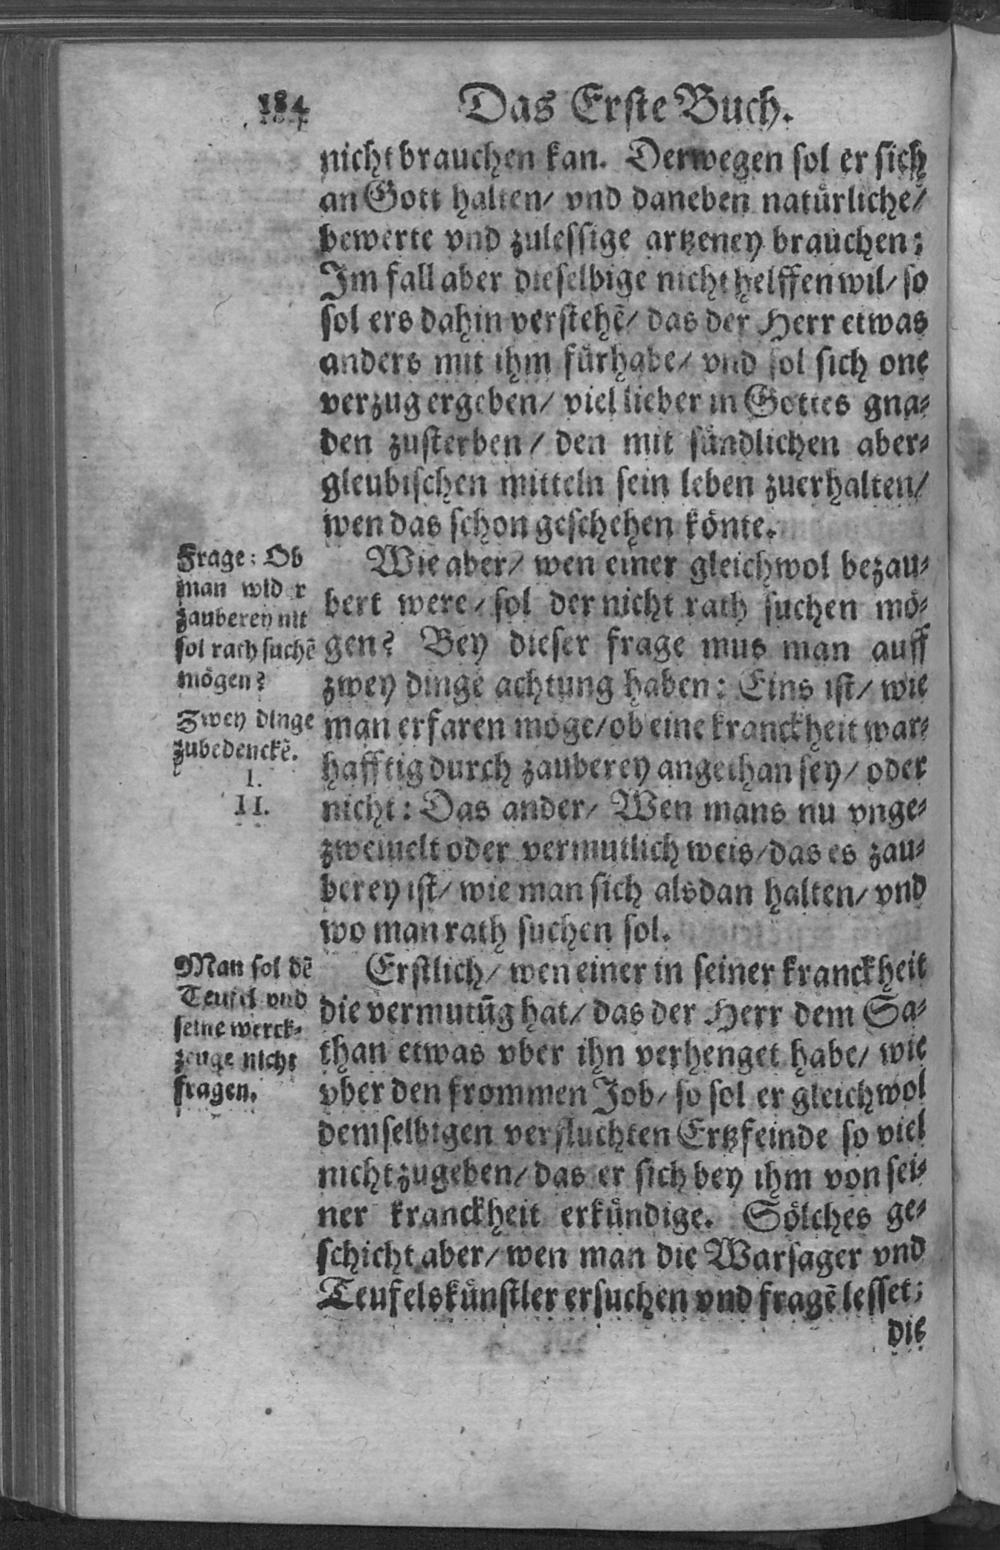 184
Das Erste Buch.
nicht brauchen kan. Derwegen sol er sich
an Gott halten/ vnd daneben natürliche/
bewerte vnd zulessige artzeney brauchen;
Im fall aber dieselbige nicht helffen wil/ so
sol ers dahin verstehē/ das der Herr etwas
anders mit ihm fürhabe/ vnd sol sich one
verzug ergeben/ viel lieber in Gottes gna-
den zusterben/ den mit sündlichen aber-
gleubischen mitteln sein leben zuerhalten/
wen das schon geschehen könte.
Frage: Ob
man wider
zauberey nit
sol rath suchē
mögen?
Zwey dinge
zubedenckē.
I.
II.
Wie aber/ wen einer gleichwol bezau-
bert were/ sol der nicht rath suchen mö-
gen? Bey dieser frage mus man auff
zwey dinge achtung haben: Eins ist/ wie
man erfaren möge/ ob eine kranckheit war-
hafftig durch zauberey angethan sey/ oder
nicht: Das ander/ Wen mans nu vnge-
zweiuelt oder vermutlich weis/ das es zau-
berey ist/ wie man sich alsdan halten/ vnd
wo man rath suchen sol.
Man sol dē
Teufel vnd
seine werck-
zeuge nicht
fragen.
Erstlich/ wen einer in seiner kranckheit
die vermutūg hat/ das der Herr dem Sa-
than etwas vber ihn verhenget habe/ wie
vber den frommen Job/ so sol er gleichwol
demselbigen verfluchten Ertzfeinde so viel
nicht zugeben/ das er sich bey ihm von sei-
ner kranckheit erkündige. Sölches ge-
schicht aber/ wen man die Warsager vnd
Teufelskünstler ersuchen vnd fragē lesset;
die